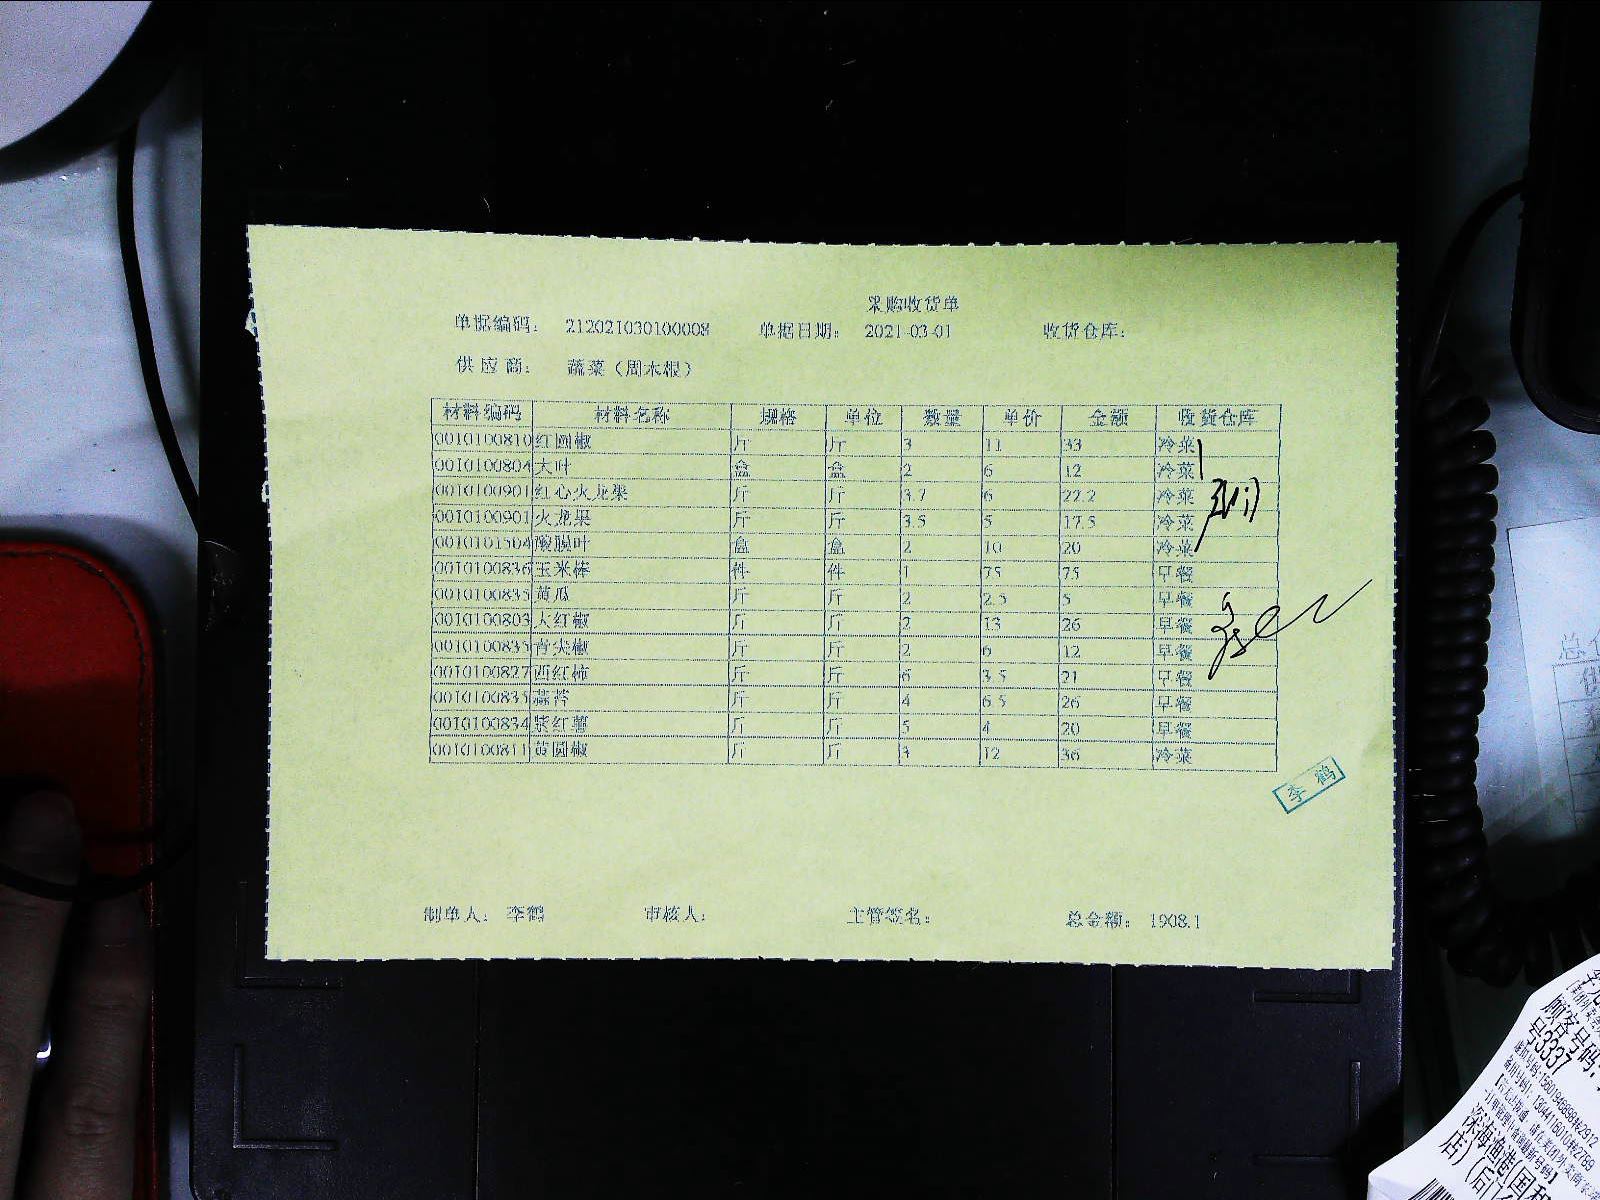 采购收货单
单据编码： 212021030100008 单据日期： 2021-03-01 收货仓库：
供应商： 蔬菜（周木根）
材料编码 材料名称 规格 单位 数量 单价 金额 收货仓库
0010100810 红圆椒 斤 斤 3 11 33 冷菜
0010100804 大叶 盒 盒 2 6 12 冷菜
0010100901 红心火龙果 斤 斤 3.7 6 22.2 冷菜
0010100901 火龙果 斤 斤 3.5 5 17.5 冷菜
0010101504 酸膜叶 盒 盒 2 10 20 冷菜
0010100836 玉米棒 件 件 1 75 75 早餐
0010100835 黄瓜 斤 斤 2 2.5 5 早餐
0010100803 大红椒 斤 斤 2 13 26 早餐
0010100835 青尖椒 斤 斤 2 6 12 早餐
0010100827 西红柿 斤 斤 6 3.5 21 早餐
0010100835 蒜苔 斤 斤 4 6.5 26 早餐
0010100834 紫红薯 斤 斤 5 4 20 早餐
0010100811 黄圆椒 斤 斤 3 12 36 冷菜
李鹤
制单人： 李鹤 审核人： 主管签名： 总金额： 1908.1
顾客号码：
号3337
店）（后